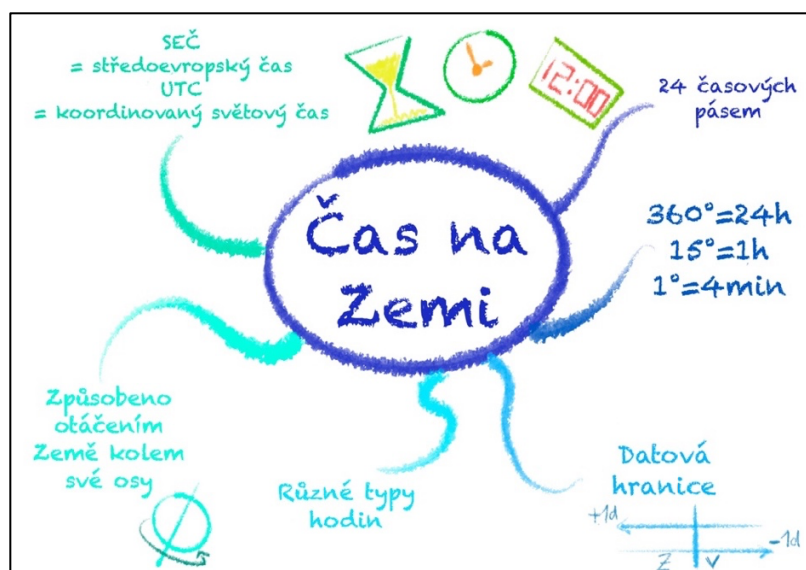 SEČ
= středoevropský čas
UTC
= koordinovaný světový čas
12:00
24 časových
pásem
Čas na
Zemi
360°=24h
15°=1h
1°=4min
Způsobeno
otáčením
Země kolem
své osy
Různé typy
hodin
Datová
hranice
+1d
-1d
Z V